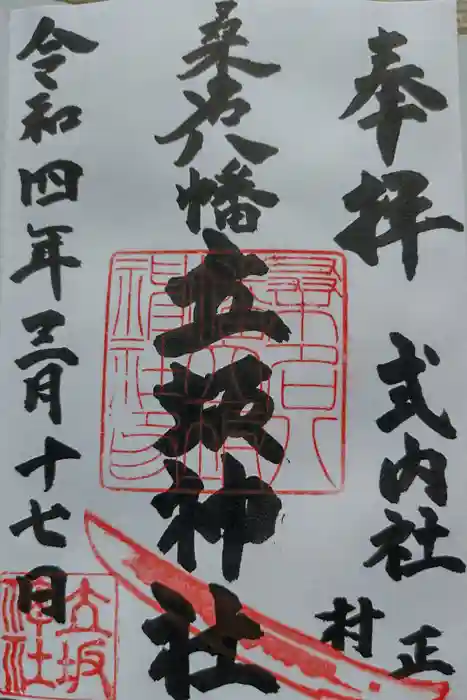 奉拝 式内社
村正
桑名八幡
立坂神社
令和四年三月十七日
桑名八
神社印
立坂
神社